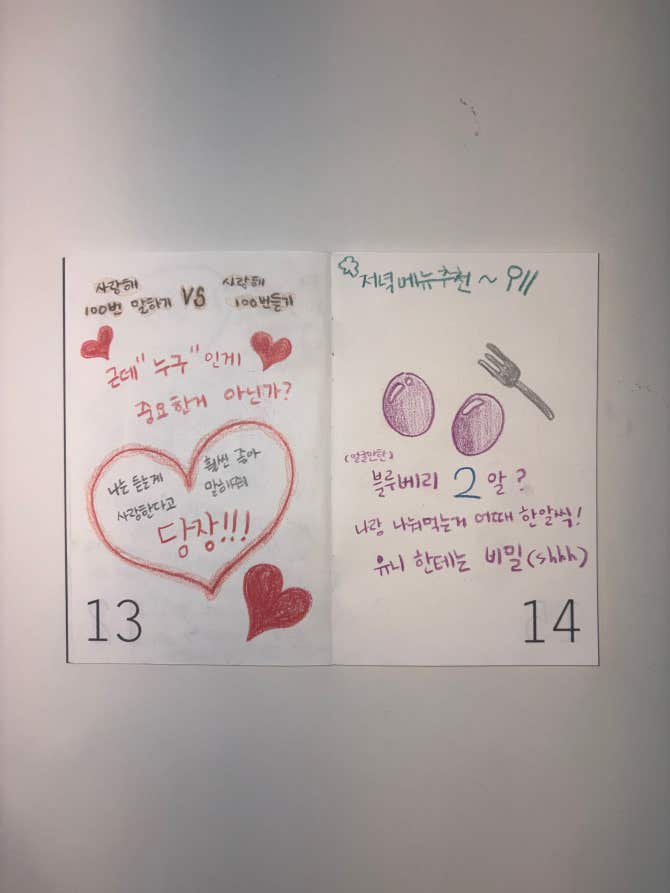 사랑해 사랑해
100번 말하기 VS 100번듣기
근데 "누구" 인게
중요한거 아닌가?
나는 듣는게 훨씬 좋아
사랑한다고 말해줘
당장!!!
13
저녁메뉴추천 ~
(얼굴만한)
블루베리 2알?
나랑 나눠먹는거 어때 한알씩!
유니 한테는 비밀(shhh)
14